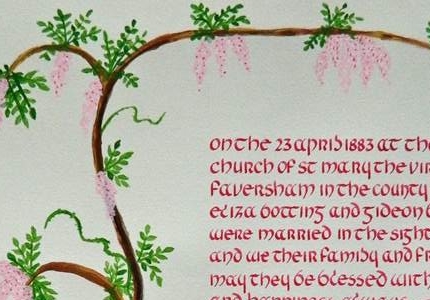 on the 23 april 1883 at the
church of st mary the vir
faversham in the county
eliza botting and gideon
were married in the sight
and we their family and fr
may they be blessed with
and happiness